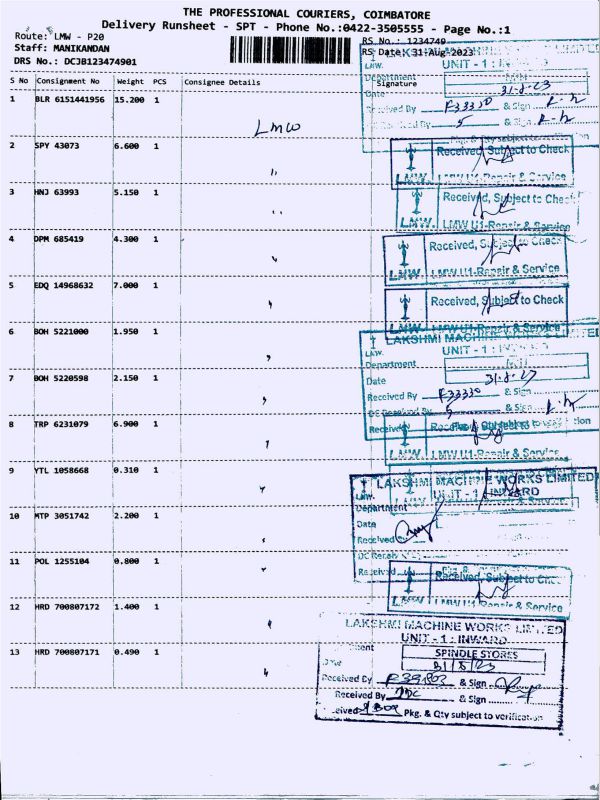 THE PROFESSIONAL COURIERS, COIMBATORE
Delivery Runsheet - SPT - Phone No.:0422-3505555 - Page No.:1
Route: LMW - P20
RS No.: 1234749
Staff: MANIKANDAN
RS Date: 31-Aug-2023
DRS No.: DCJB123474901
S No Consignment No Weight PCS Consignee Details Signature
1 BLR 6151441956 15.200 1
LMW
2 SPY 43073 6.600 1
3 HNJ 63993 5.150 1
4 DPM 685419 4.300 1
5 EDQ 14968632 7.000 1
6 BOH 5221000 1.950 1
7 BOH 5220598 2.150 1
8 TRP 6231079 6.900 1
9 YTL 1058668 0.310 1
10 MTP 3051742 2.200 1
11 POL 1255104 0.800 1
12 HRD 700807172 1.400 1
13 HRD 700807171 0.490 1
UNIT - 1 :
Department
Date 31-8-23
Received By F33330 & Sign
5 & Sign
Pkg. & Qty subject to verification
Received, Subject to Check
LMW. LMW U1-Repair & Service
Received, Subject to Check
LMW. LMW U1-Repair & Service
Received, Subject to Check
LMW. LMW U1-Repair & Service
Received, Subject to Check
LMW. LMW U1-Repair & Service
LAKSHMI MACHINE WORKS LIMITED
UNIT - 1 : INWARD
Department
Date 31-8-23
Received By F33330 & Sign
DC Received By 5 & Sign
Received
LMW U1-Repair & Service
LAKSHMI MACHINE WORKS LIMITED
UNIT - 1 : INWARD
Department
Date
Received
DC Receiv
Received
Received, Subject to Chec
LMW U1-Repair & Service
LAKSHMI MACHINE WORKS LIMITED
UNIT - 1 : INWARD
SPINDLE STORES
31/8/23
Received By & Sign
Received By & Sign
Pkg. & Qty subject to verification